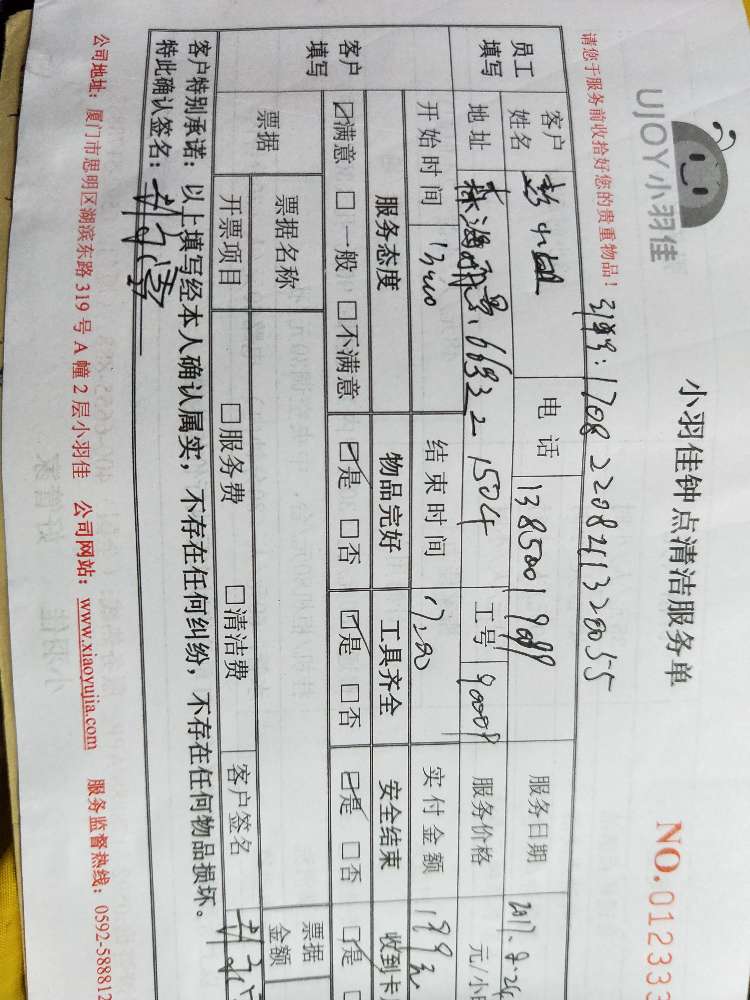 UJOY小羽佳
小羽佳钟点清洁服务单
NO. 012333
请您于服务前收拾好您的贵重物品！ 1708220841320055
员工填写 客户姓名 彭小姐 电话 13850019089 服务日期 2017.8.24
地址 1504 工号 90009 服务价格 元/小
开始时间 13:00 结束时间 17:00 实付金额 199元
客户填写 服务态度 物品完好 工具齐全 安全结束 收到卡
☑满意 □一般 □不满意 ☑是 □否 ☑是 □否 ☑是 □否 ☑是
票据 票据名称 票据金额
开票项目 □服务费 □清洁费 客户签名
客户特别承诺：以上填写经本人确认属实，不存在任何纠纷，不存在任何物品损坏。
特此确认签名：
公司地址：厦门市思明区湖滨东路 319 号 A 幢 2 层小羽佳 公司网站：www.xiaoyujia.com 服务监督热线：0592-588812